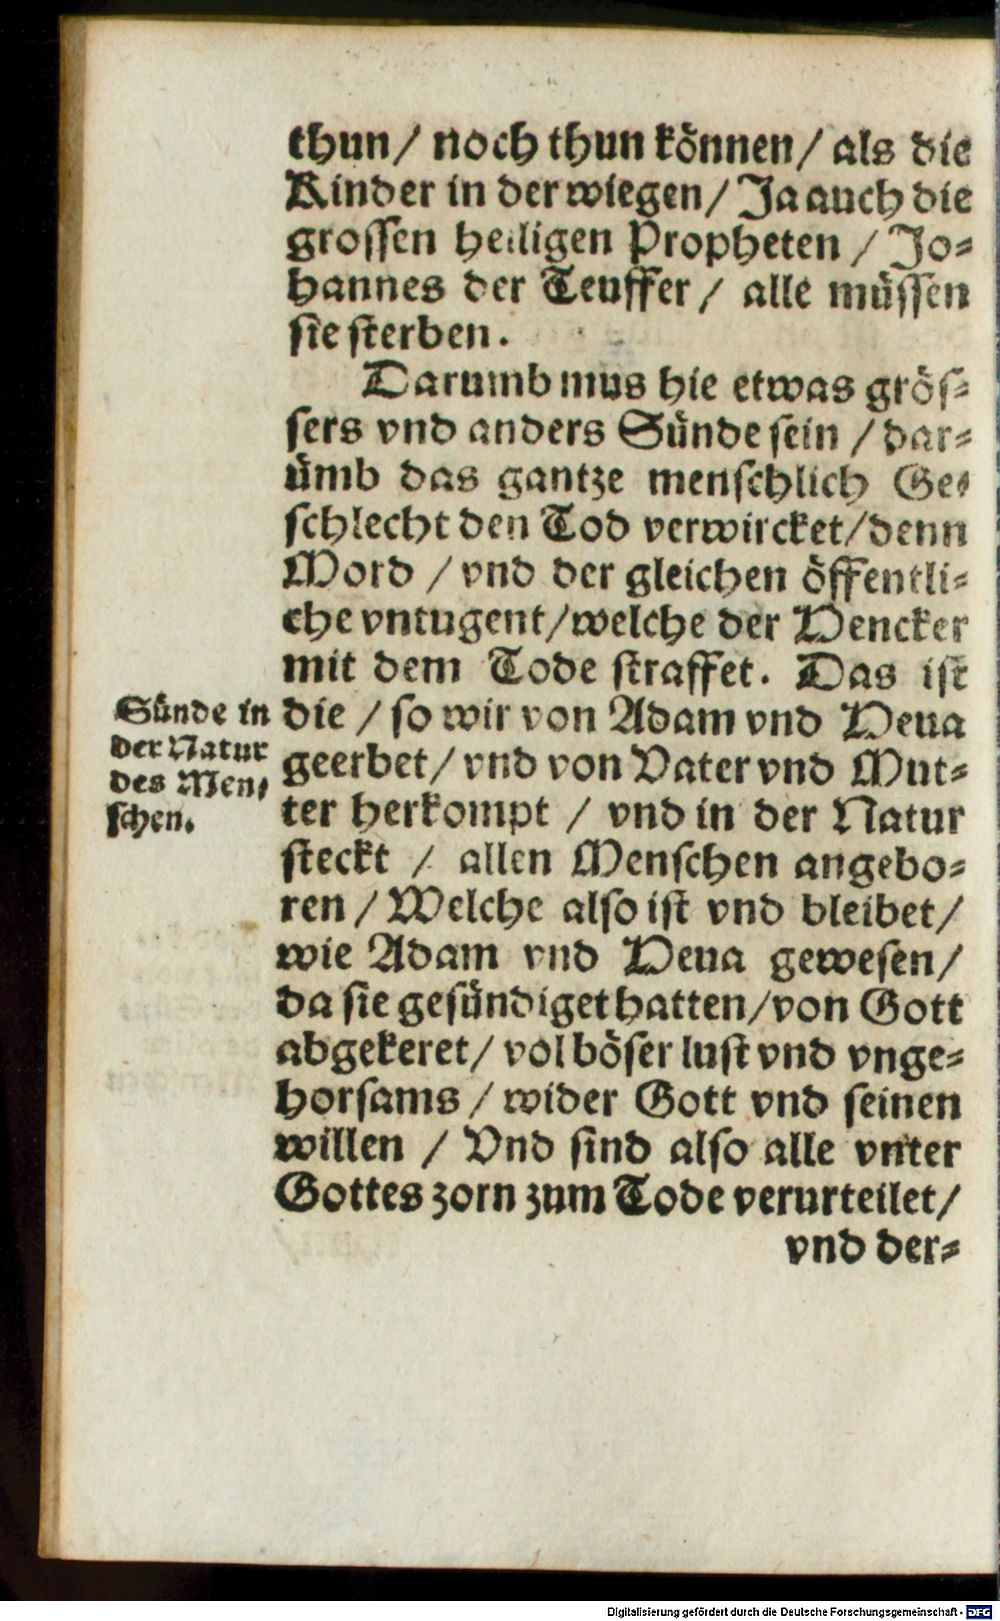 thun/ noch thun können/ als die
Kinder in der wiegen/ Ja auch die
grossen heiligen Propheten / Jo-
hannes der Teuffer/ alle müssen
sie sterben.
Darumb mus hie etwas grös-
sers vnd anders Sünde sein / dar-
ümb das gantze menschlich Ge-
schlecht den Tod verwircket/denn
Mord / vnd der gleichen öffentli-
che vntugent/welche der Hencker
mit dem Tode straffet. Das ist
die / so wir von Adam vnd Heua
geerbet/ vnd von Vater vnd Mut-
ter herkompt / vnd in der Natur
steckt / allen Menschen angebo-
ren / Welche also ist vnd bleibet/
wie Adam vnd Heua gewesen/
da sie gesündiget hatten/von Gott
abgekeret/ vol böser lust vnd vnge-
horsams / wider Gott vnd seinen
willen / Vnd sind also alle vnter
Gottes zorn zum Tode verurteilet/
vnd der-
Sünde in
der Natur
des Men-
schen.
Digitalisierung gefördert durch die Deutsche Forschungsgemeinschaft - DFG